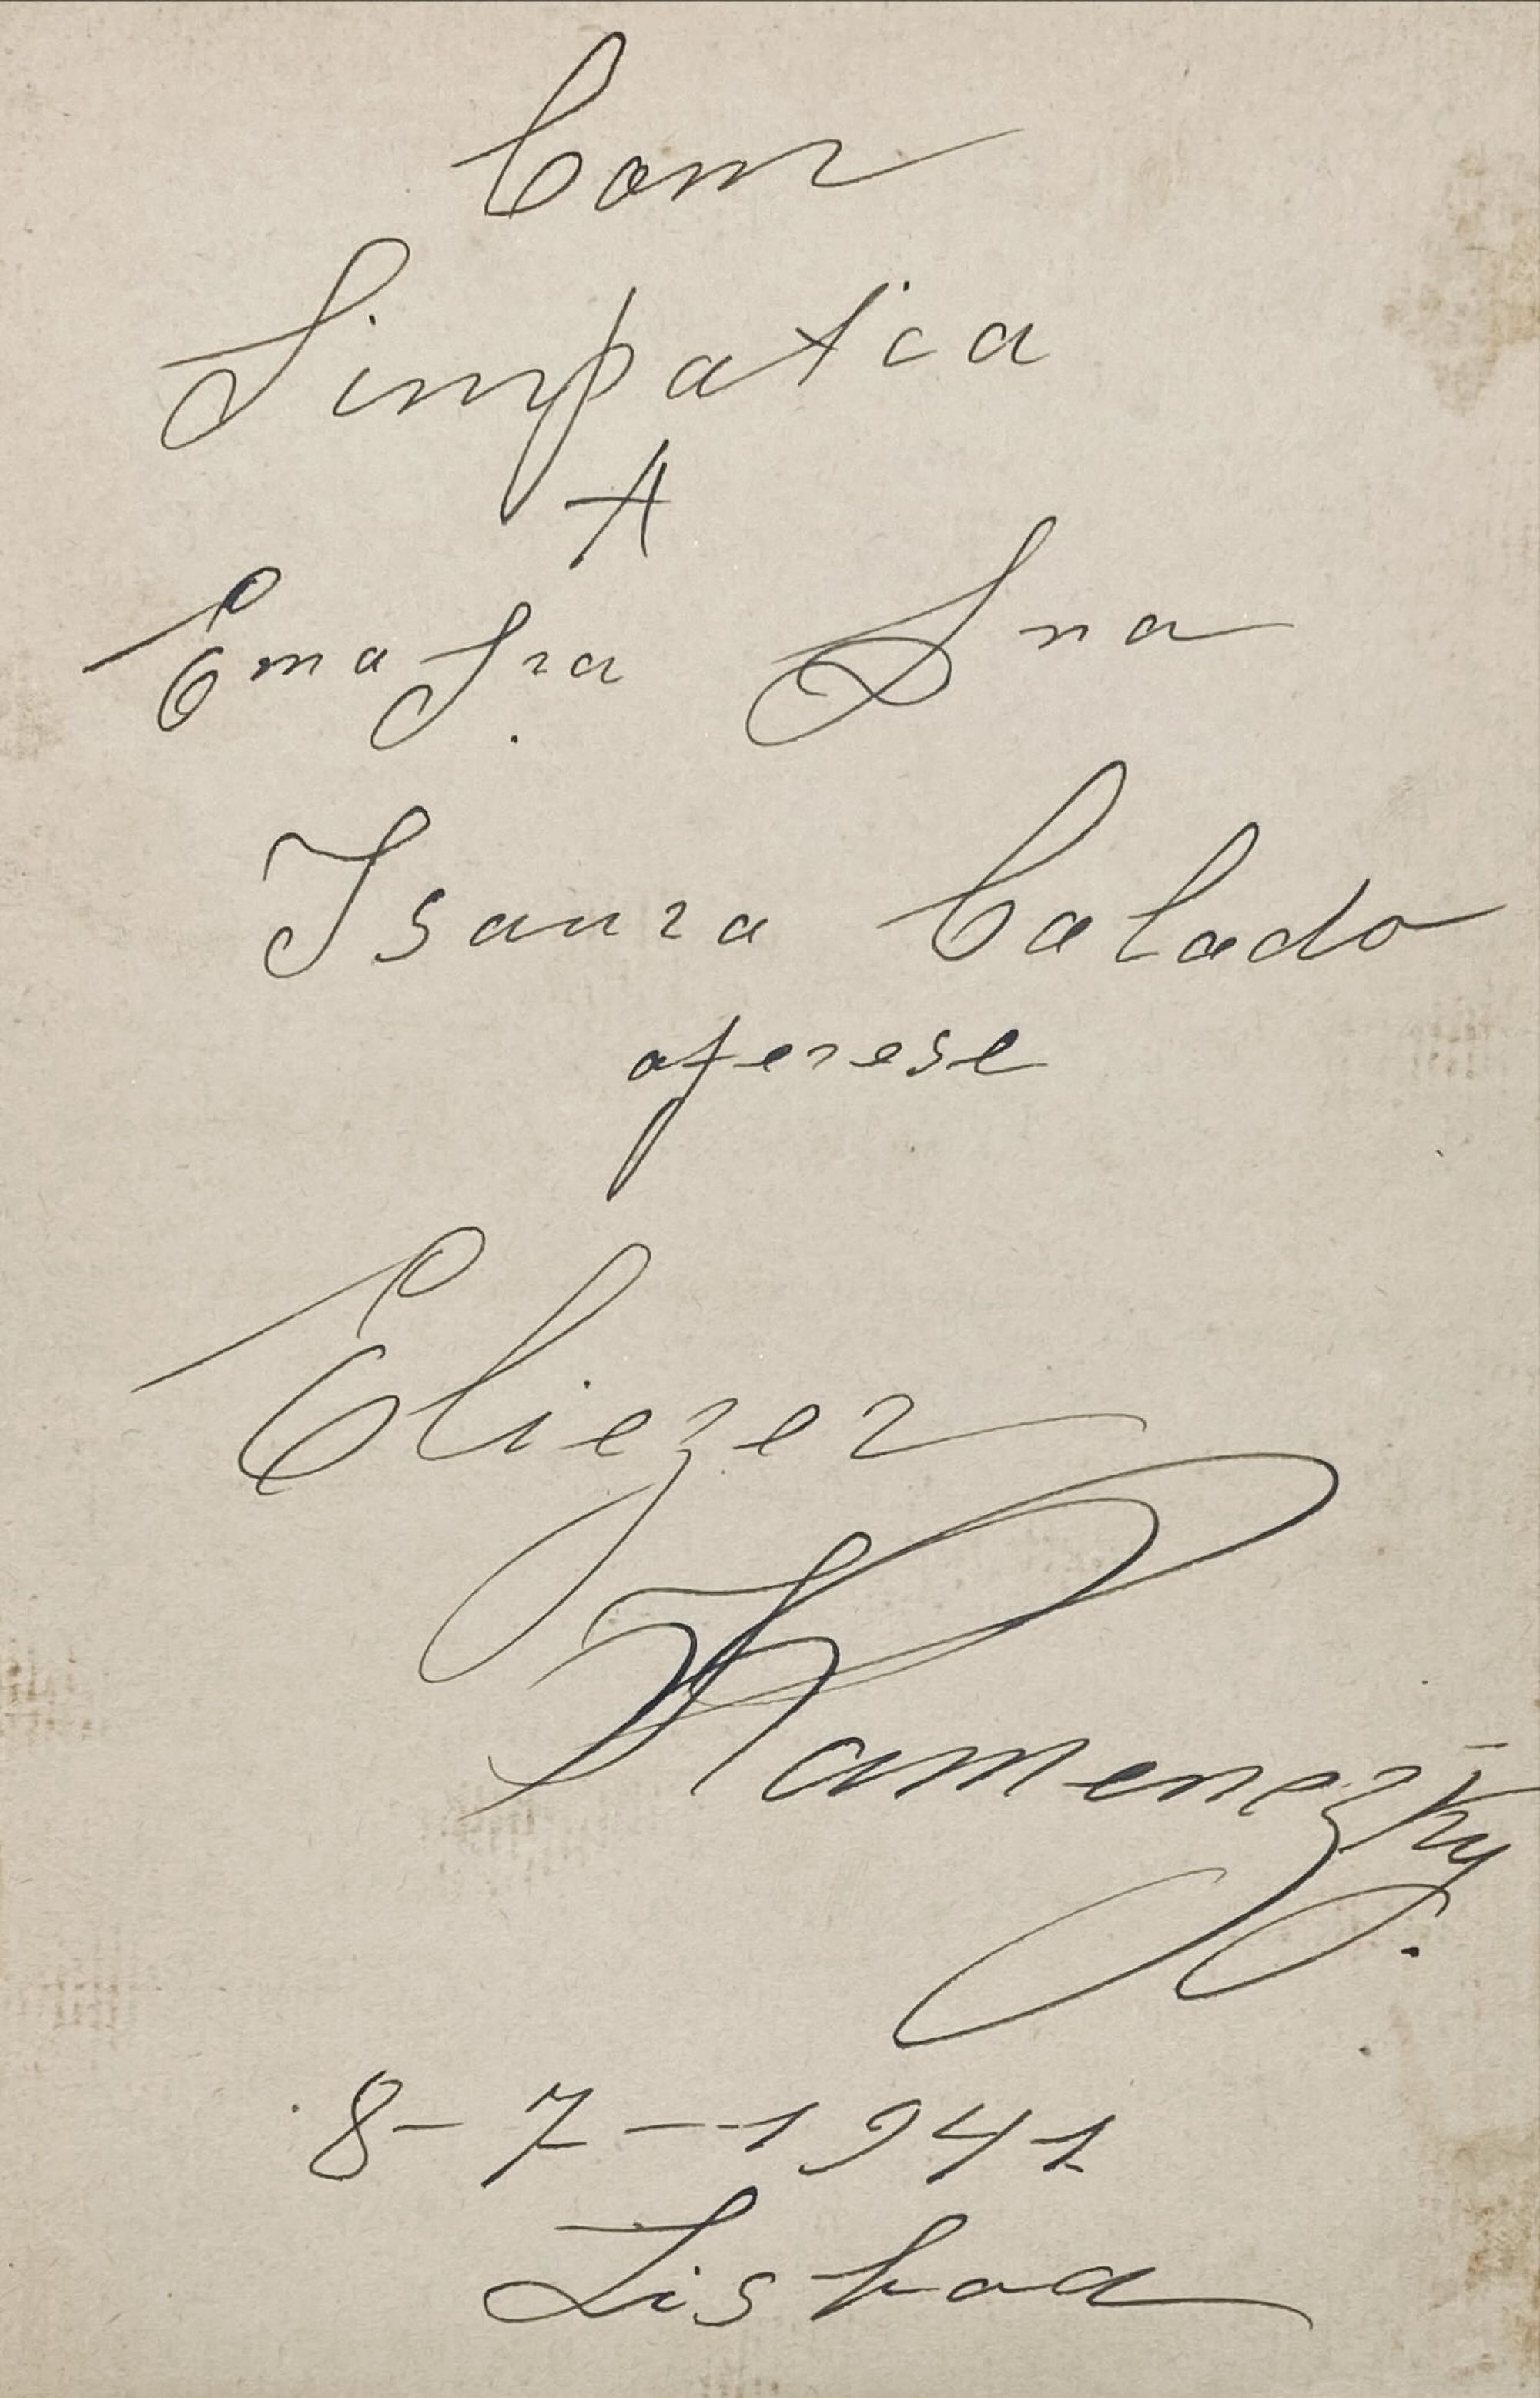 Com
Simpatia
A
Ema Sra Dna
Isaura Calado
oferese
Eliezer
Kamenezky.
8-7-1941
Lisboa